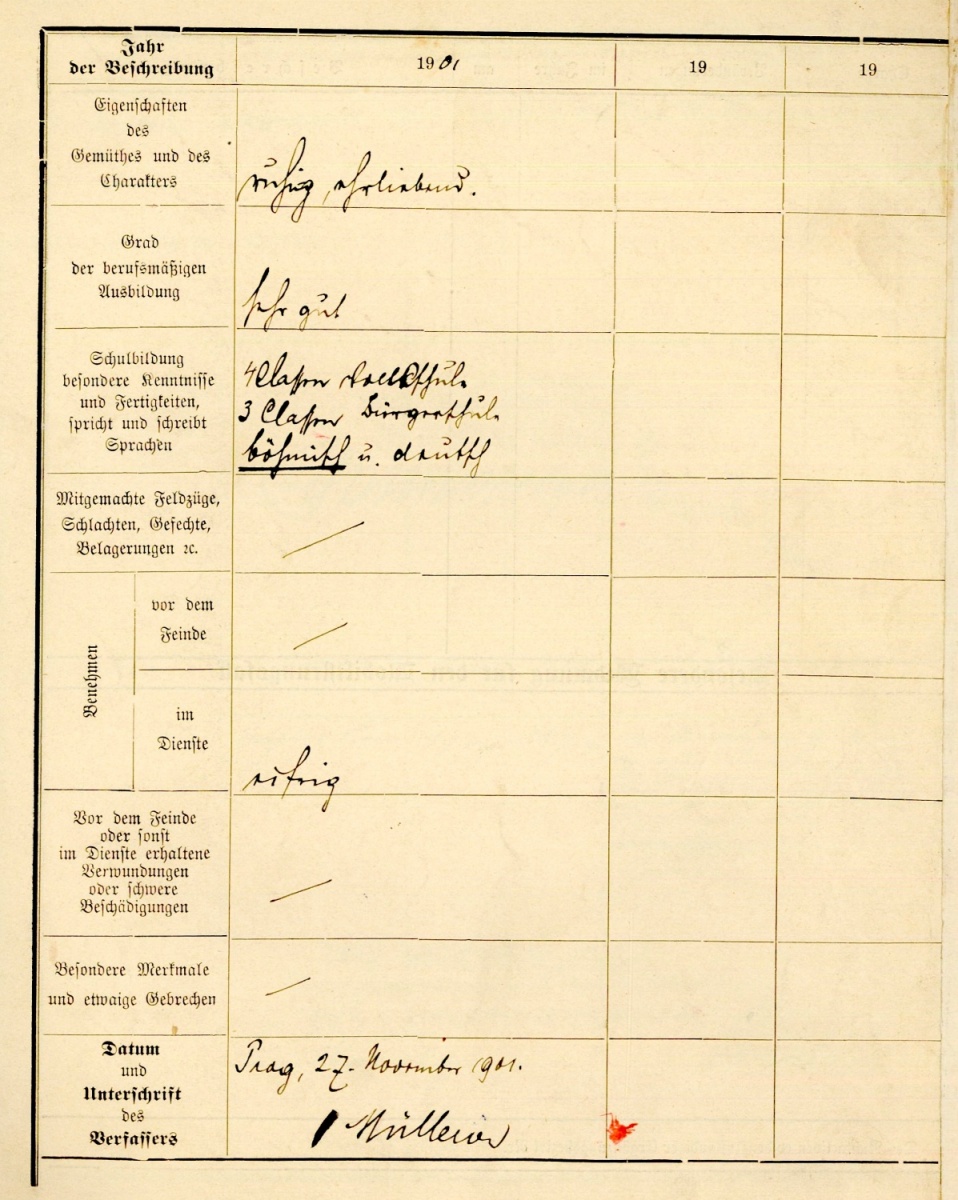 Jahr
der Beschreibung
1901
19
19
Eigenschaften
des
Gemüthes und des
Charakters
ruhig, ehrliebend.
Grad
der berufsmäßigen
Ausbildung
sehr gut
Schulbildung
besondere Kenntnisse
und Fertigkeiten,
spricht und schreibt
Sprachen
4 Classen Volksschule
3 Classen Bürgerschule
böhmisch u. deutsch
Mitgemachte Feldzüge,
Schlachten, Gefechte,
Belagerungen ꝛc.
Benehmen
vor dem
Feinde
im
Dienste
eifrig
Vor dem Feinde
oder sonst
im Dienste erhaltene
Verwundungen
oder schwere
Beschädigungen
Besondere Merkmale
und etwaige Gebrechen
Datum
und
Unterschrift
des
Verfassers
Prag, 27. November 901.